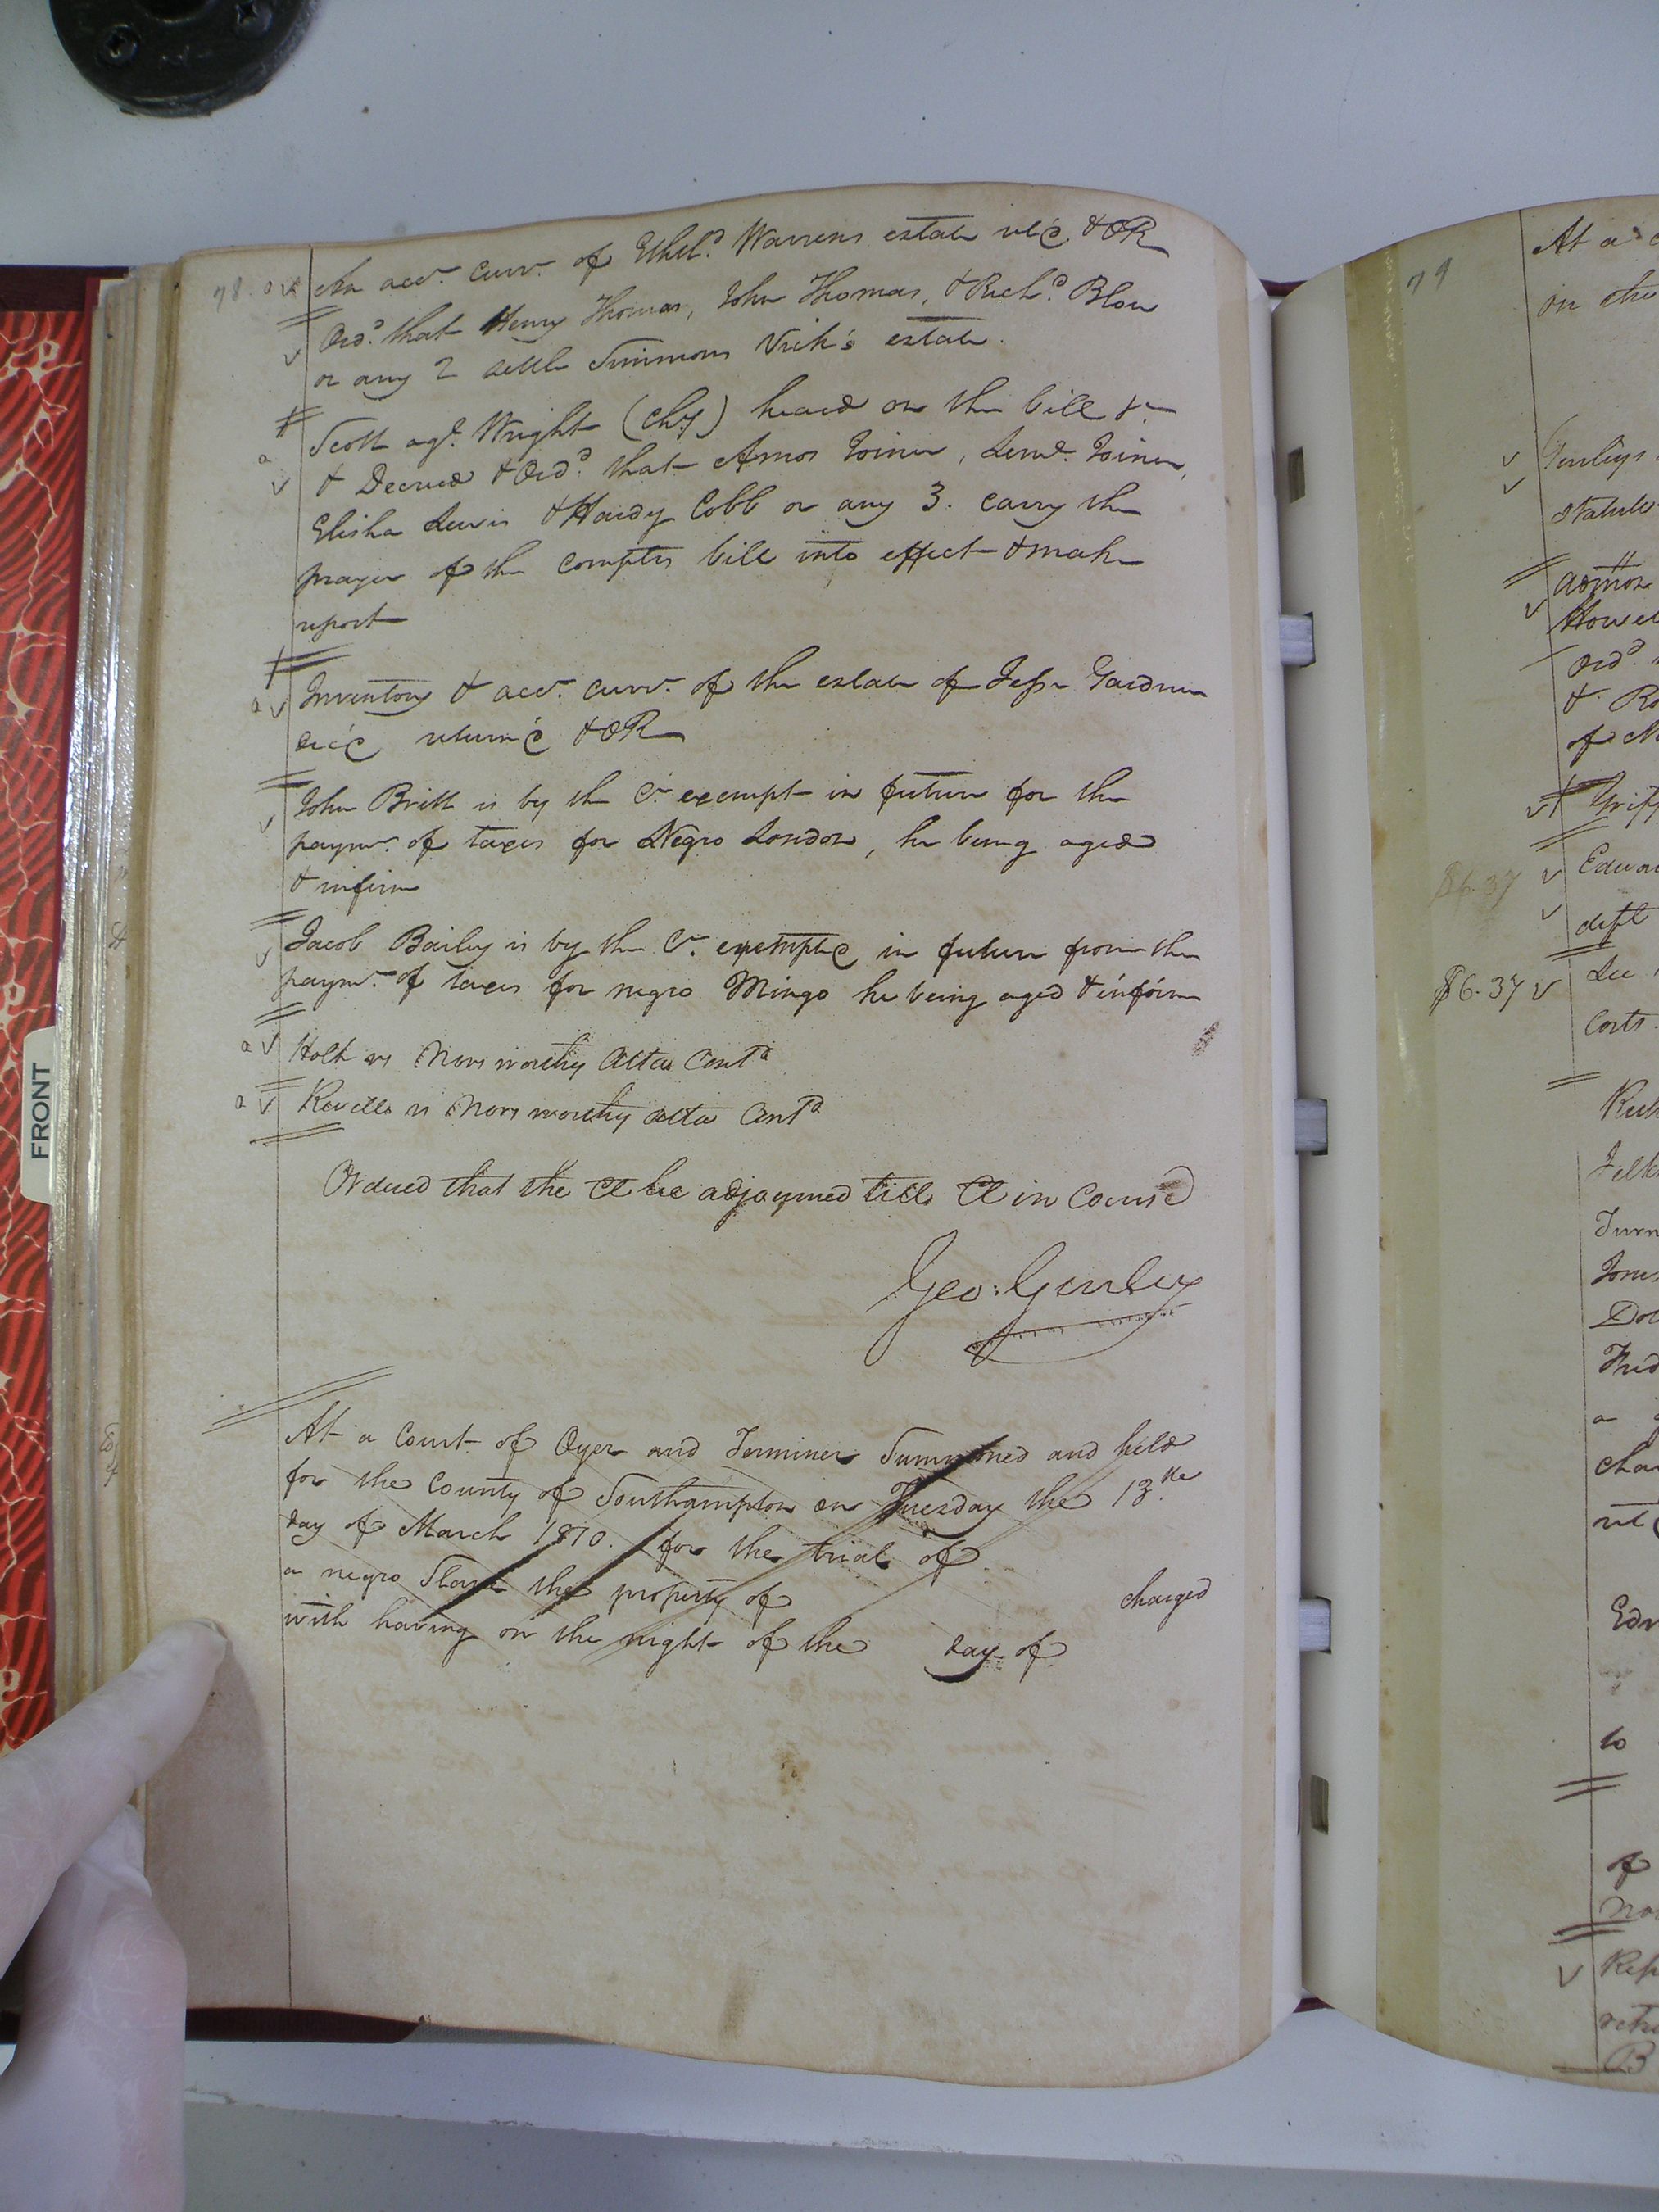 78
An acct. curr. of Ethel.d Warrens estate ret'd & OR
Ord.d that Henry Thomas, John Thomas, & Rich.d Blow
or any 2 settle Simmons Vick's estate.
Scott ag.t Wright (Chy) heard on the bill &c
& Decreed & Ord.d that Amos Joiner, Joiner,
Elisha Lewis & Hardy Cobb or any 3. carry the
prayer of the compts bill into effect & make
report
Inventory & acct. curr. of the estate of Jesse Gardner
dec'd return'd & OR
John Britt is by the Ct. exempt in future for the
paymt. of taxes for Negro London, he being aged
& infirm
Jacob Bailey is by the Ct. exempted in future from the
paymt. of taxes for negro Mingo he being aged & infirm
Holt vs Norsworthy atta Cont.d
Revells vs Norsworthy atta Cont.d
Ordered that the Ct be adjourned till Ct in Course
Geo: Gurley
At a Court of Oyer and Terminer Summoned and held
for the County of Southampton on Tuesday the 13.th
day of March 1810. for the trial of
a negro Slave the property of charged
with having on the night of the day of
FRONT
79
At a
on the
Gurleys
statute
admor
Howel
Ord.d
& Ro
of
Griff
$6.37
Edwar
deft
$6.37
Lee
Costs.
Turn
a
cha
Edw
to
of
Rep
B